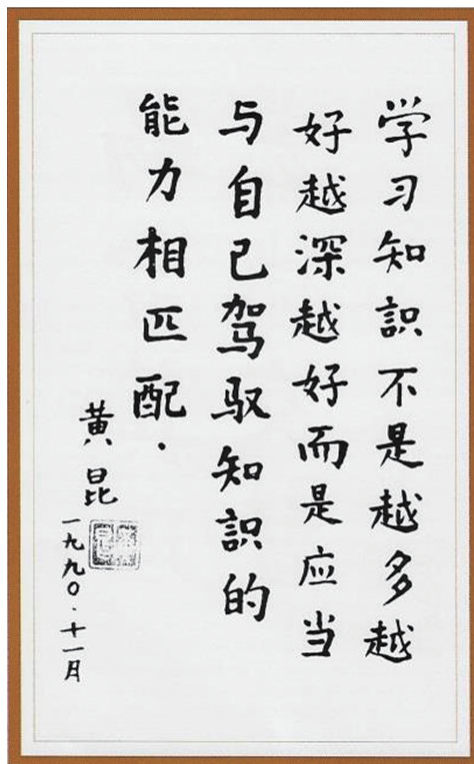 学习知識不是越多越
好越深越好而是应当
与自己驾驭知識的
能力相匹配.
黄昆
一九九〇.十一月